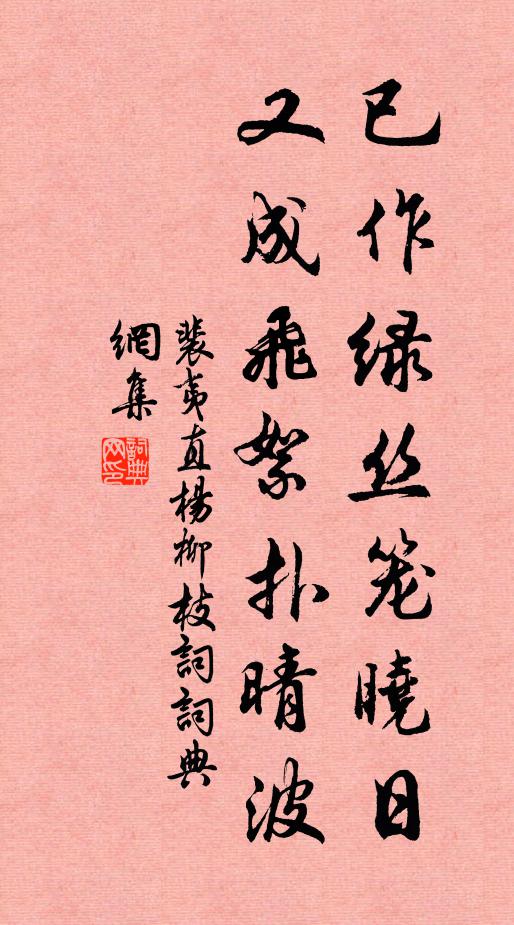 已作绿丝笼晓日
又成飛絮扑晴波
裴夷直楊柳枝詞詞典
網集
詞典
网印